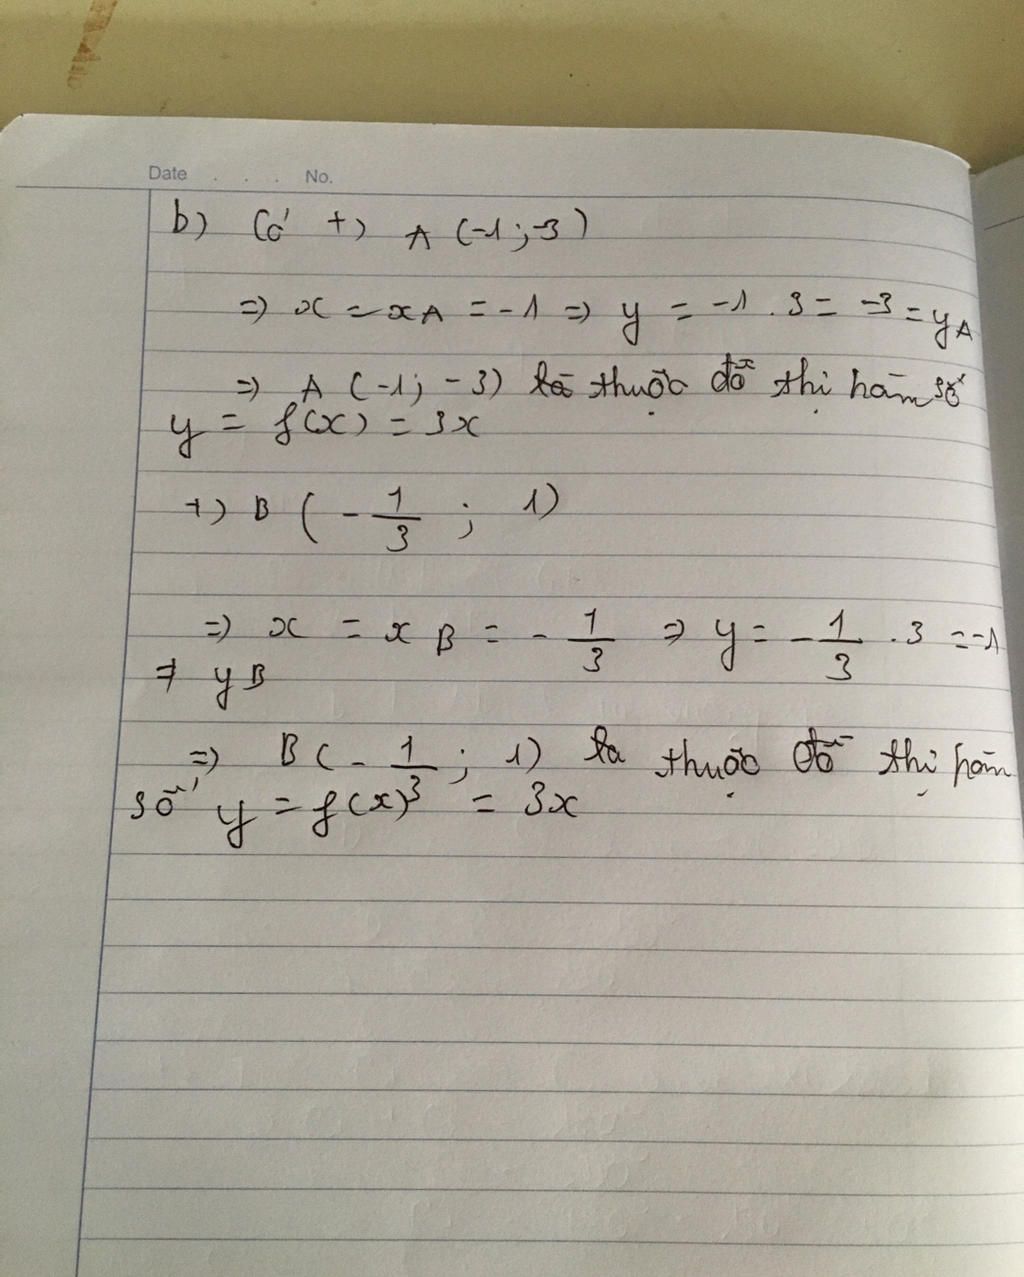 Date . . . No.
b) Có +) A (-1 ; -3)
=> x = xA = -1 => y = -1 . 3 = -3 = yA
=> A (-1 ; -3) thuộc đồ thị hàm số
y = f(x) = 3x
+) B ( - 1/3 ; 1)
=> x = x B = - 1/3 => y = - 1/3 . 3 = -1
≠ y B
=> B ( - 1/3 ; 1) thuộc đồ thị hàm
số y = f(x) = 3x